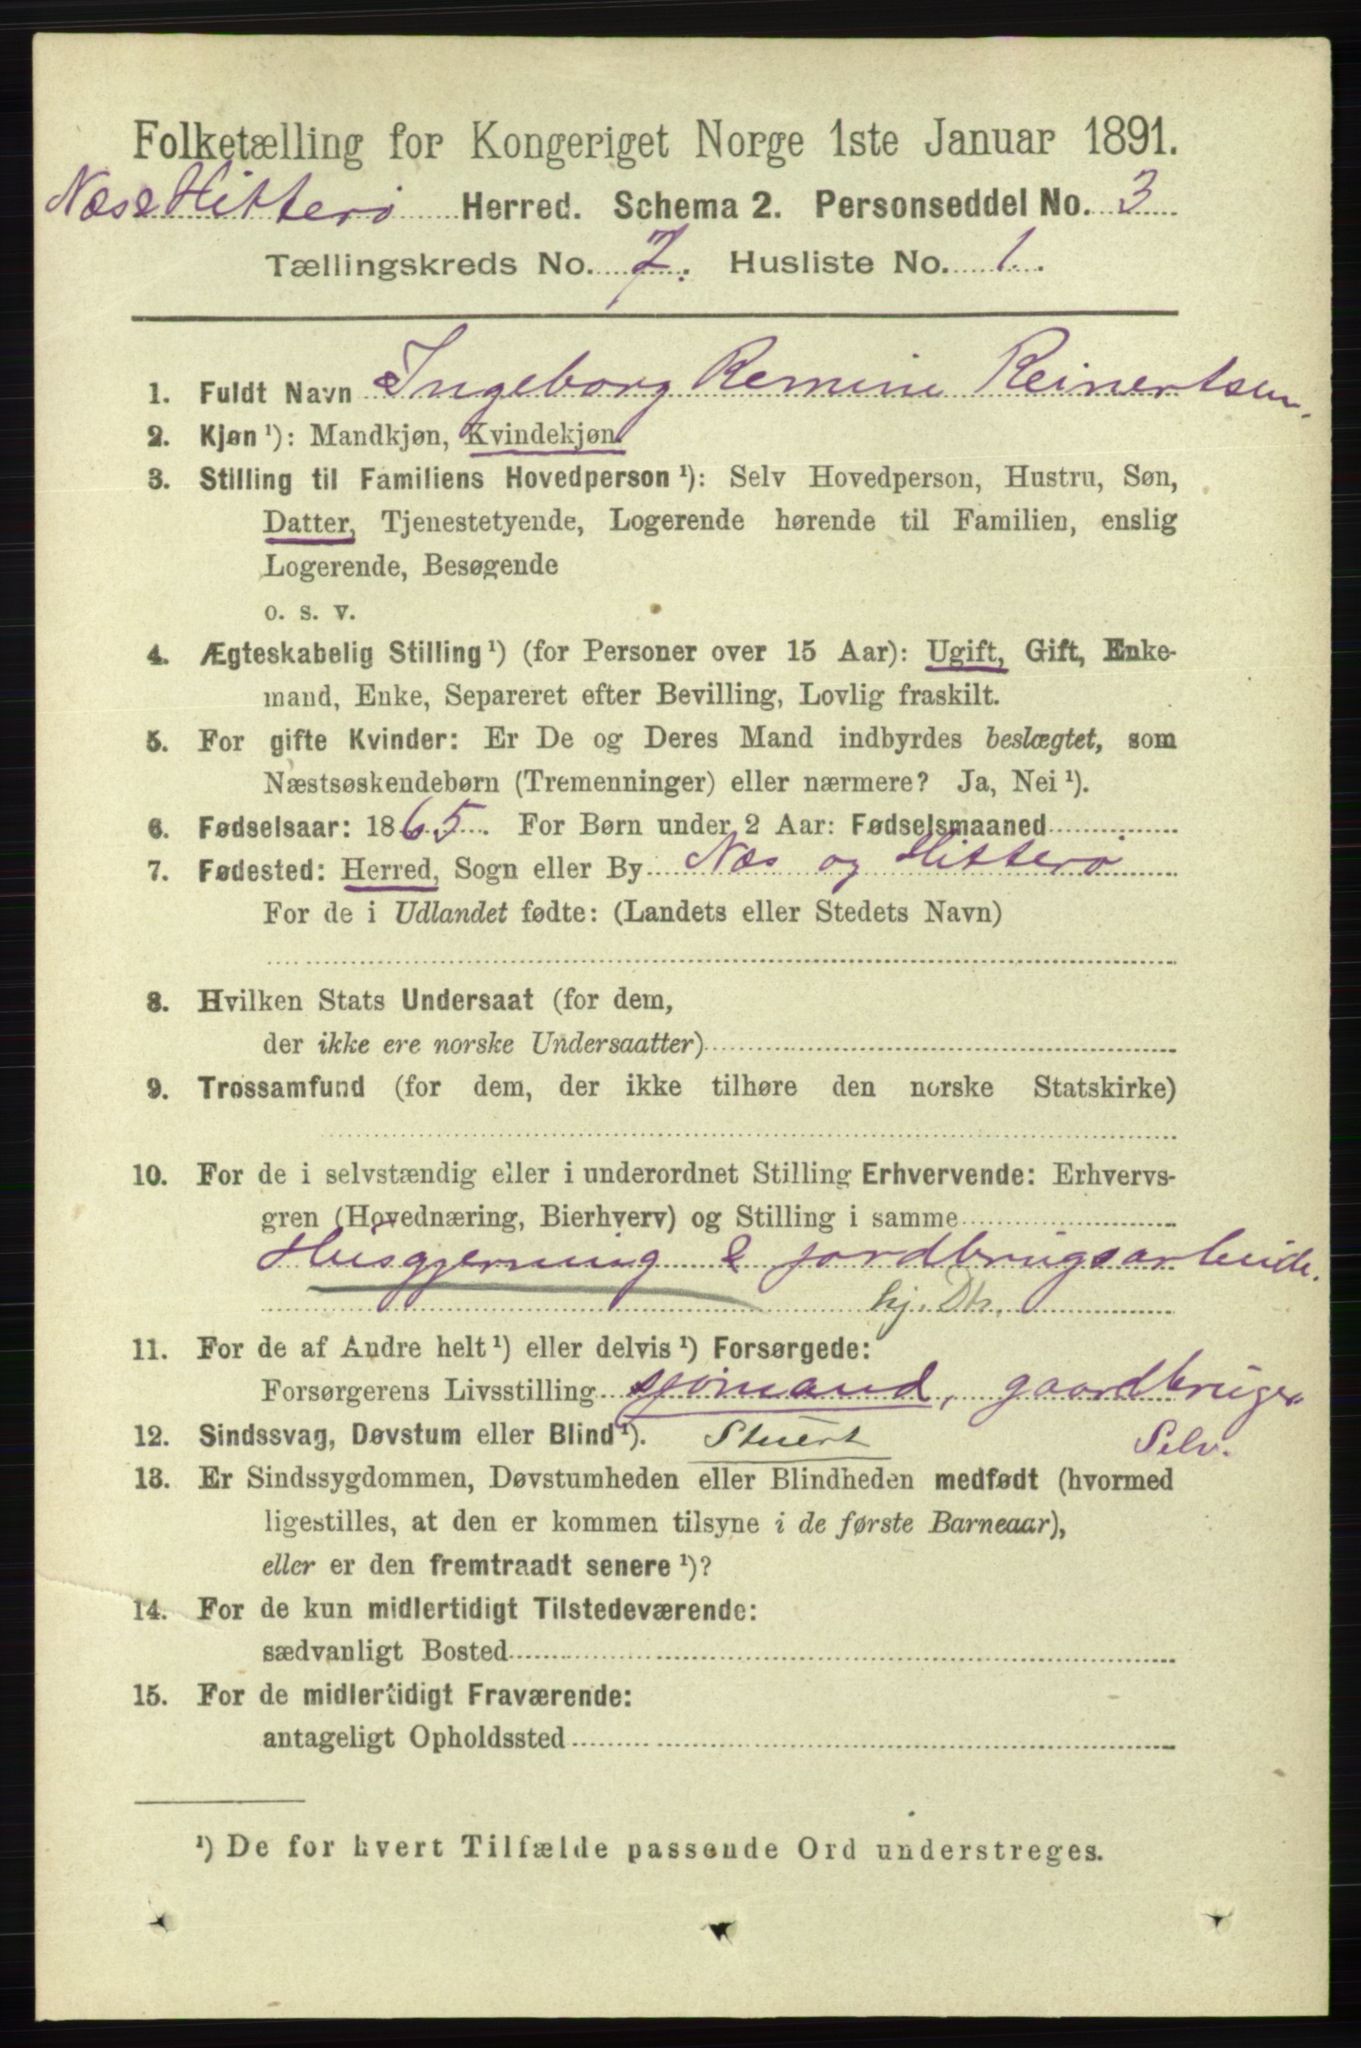 Folketælling for Kongeriget Norge 1ste Januar 1891.
Næs & Hitterø Herred. Schema 2. Personseddel No. 3
Tællingskreds No. 7. Husliste No. 1.
1. Fuldt Navn Ingeborg Remine Reinertsen.
2. Kjøn ¹): Mandkjøn, Kvindekjøn.
3. Stilling til Familiens Hovedperson ¹): Selv Hovedperson, Hustru, Søn,
Datter, Tjenestetyende, Logerende hørende til Familien, enslig
Logerende, Besøgende
o. s. v.
4. Ægteskabelig Stilling ¹) (for Personer over 15 Aar): Ugift, Gift, Enke-
mand, Enke, Separeret efter Bevilling, Lovlig fraskilt.
5. For gifte Kvinder: Er De og Deres Mand indbyrdes beslægtet, som
Næstsøskendebørn (Tremenninger) eller nærmere? Ja, Nei ¹).
6. Fødselsaar: 1865. For Børn under 2 Aar: Fødselsmaaned
7. Fødested: Herred, Sogn eller By Næs og Hitterø
For de i Udlandet fødte: (Landets eller Stedets Navn)
8. Hvilken Stats Undersaat (for dem,
der ikke ere norske Undersaatter)
9. Trossamfund (for dem, der ikke tilhøre den norske Statskirke)
10. For de i selvstændig eller i underordnet Stilling Erhvervende: Erhvervs-
gren (Hovednæring, Bierhverv) og Stilling i samme
Husgjerning & jordbrugsarbeide.
hj. Dtr.
11. For de af Andre helt ¹) eller delvis ¹) Forsørgede:
Forsørgerens Livsstilling sjømand, gaardbruger
12. Sindssvag, Døvstum eller Blind ¹). Stuert Selv.
13. Er Sindssygdommen, Døvstumheden eller Blindheden medfødt (hvormed
ligestilles, at den er kommen tilsyne i de første Barneaar),
eller er den fremtraadt senere ¹)?
14. For de kun midlertidigt Tilstedeværende:
sædvanligt Bosted
15. For de midlertidigt Fraværende:
antageligt Opholdssted
¹) De for hvert Tilfælde passende Ord understreges.